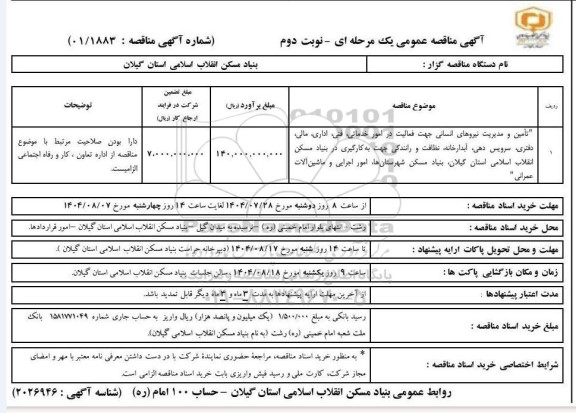 آگهی مناقصه عمومی یک مرحله ای -نوبت دوم (شماره آگهی مناقصه : ۰۱/۱۸۸۳)
نام دستگاه مناقصه گزار : بنیاد مسکن انقلاب اسلامی استان گیلان
ردیف موضوع مناقصه مبلغ برآورد (ریال) مبلغ تضمین شرکت در فرایند ارجاع کار (ریال) توضیحات
۱ "تأمین و مدیریت نیروهای انسانی جهت فعالیت در امور خدماتی، فنی، اداری، مالی،
دفتری، سرویس دهی، آبدارخانه، نظافت و رانندگی جهت به کارگیری در بنیاد مسکن
انقلاب اسلامی استان گیلان، بنیاد مسکن شهرستان‌ها، امور اجرایی و ماشین‌آلات
عمرانی"
۱۴۰,۰۰۰,۰۰۰,۰۰۰
۷,۰۰۰,۰۰۰,۰۰۰
دارا بودن صلاحیت مرتبط با موضوع
مناقصه از اداره تعاون ، کار و رفاه اجتماعی
الزامیست.
مهلت خرید اسناد مناقصه : از ساعت ۸ روز دوشنبه مورخ ۱۴۰۴/۰۷/۲۸ لغایت ساعت ۱۴ روز چهارشنبه مورخ ۱۴۰۴/۰۸/۰۷
محل خرید اسناد مناقصه : رشت - انتهای بلوار امام خمینی (ره) -نرسیده به میدان گیل -بنیاد مسکن انقلاب اسلامی استان گیلان -امور قراردادها.
مهلت و محل تحویل پاکات ارایه پیشنهاد : تا ساعت ۱۴ روز شنبه مورخ ۱۴۰۴/۰۸/۱۷ (دبیرخانه حراست بنیاد مسکن انقلاب اسلامی استان گیلان ).
زمان و مکان بازگشایی پاکت ها : ساعت ۹ روز یکشنبه مورخ ۱۴۰۴/۰۸/۱۸ ، سالن جلسات بنیاد مسکن انقلاب اسلامی استان گیلان.
مدت اعتبار پیشنهادها : از آخرین مهلت ارایه پیشنهادها به مدت ۳ ماه و ۳ ماه دیگر قابل تمدید باشد.
مبلغ خرید اسناد مناقصه : رسید بانکی به مبلغ ۱/۵۰۰/۰۰۰ (یک میلیون و پانصد هزار) ریال واریز به حساب جاری شماره ۱۵۸۱۷۷۱۰۴۹ بانک
ملت شعبه امام خمینی (ره) رشت (به نام بنیاد مسکن انقلاب اسلامی گیلان).
شرایط اختصاصی خرید اسناد مناقصه : * به منظور خرید اسناد مناقصه، مراجعۀ حضوری نمایندۀ شرکت با در دست داشتن معرفی نامه معتبر با مهر و امضای
مجاز شرکت، کارت ملی و رسید فیش واریزی بابت خرید اسناد مناقصه الزامی است.
روابط عمومی بنیاد مسکن انقلاب اسلامی استان گیلان - حساب ۱۰۰ امام (ره) (شناسه آگهی : ۲۰۲۶۹۴۶)